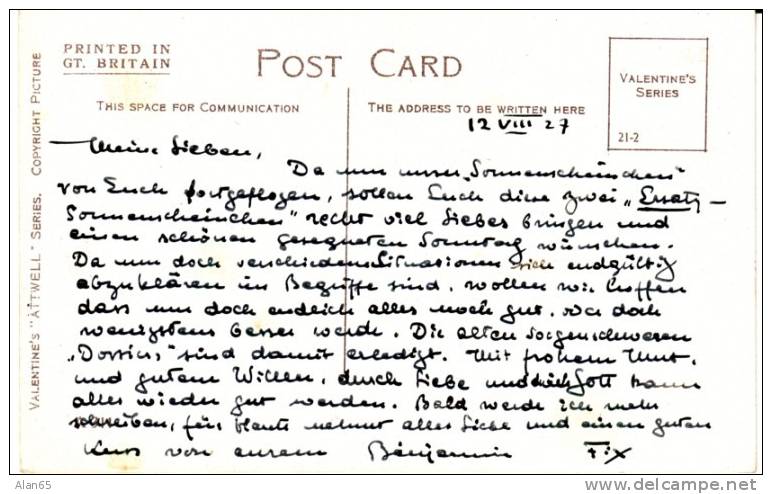 PRINTED IN
GT. BRITAIN
POST CARD
VALENTINE'S
SERIES
21-2
THIS SPACE FOR COMMUNICATION
THE ADDRESS TO BE WRITTEN HERE
VALENTINE'S "ATTWELL" SERIES. COPYRIGHT PICTURE
12 VIII 27
Meine Lieben,
Da nun unser „Sonnenscheinchen"
von Euch fortgeflogen, sollen Euch diese zwei „Ersatz-
Sonnenscheinchen" recht viel Liebes bringen und
einen schönen gesegneten Sonntag wünschen.
Da nun doch verschiedene Situationen sich endgültig
abzuklären im Begriffe sind, wollen wir hoffen
dass nun doch endlich alles noch gut, oder doch
wenigstens besser werde. Die alten sorgenschweren
„Dossiers" sind damit erledigt. Mit frohem Mut,
und gutem Willen, durch Liebe und durch Gott kann
alles wieder gut werden. Bald werde ich mehr
schreiben, für heute nehmt alles Liebe und einen guten
Kuss von eurem Benjamin Fix
Alan65
delcampe.net